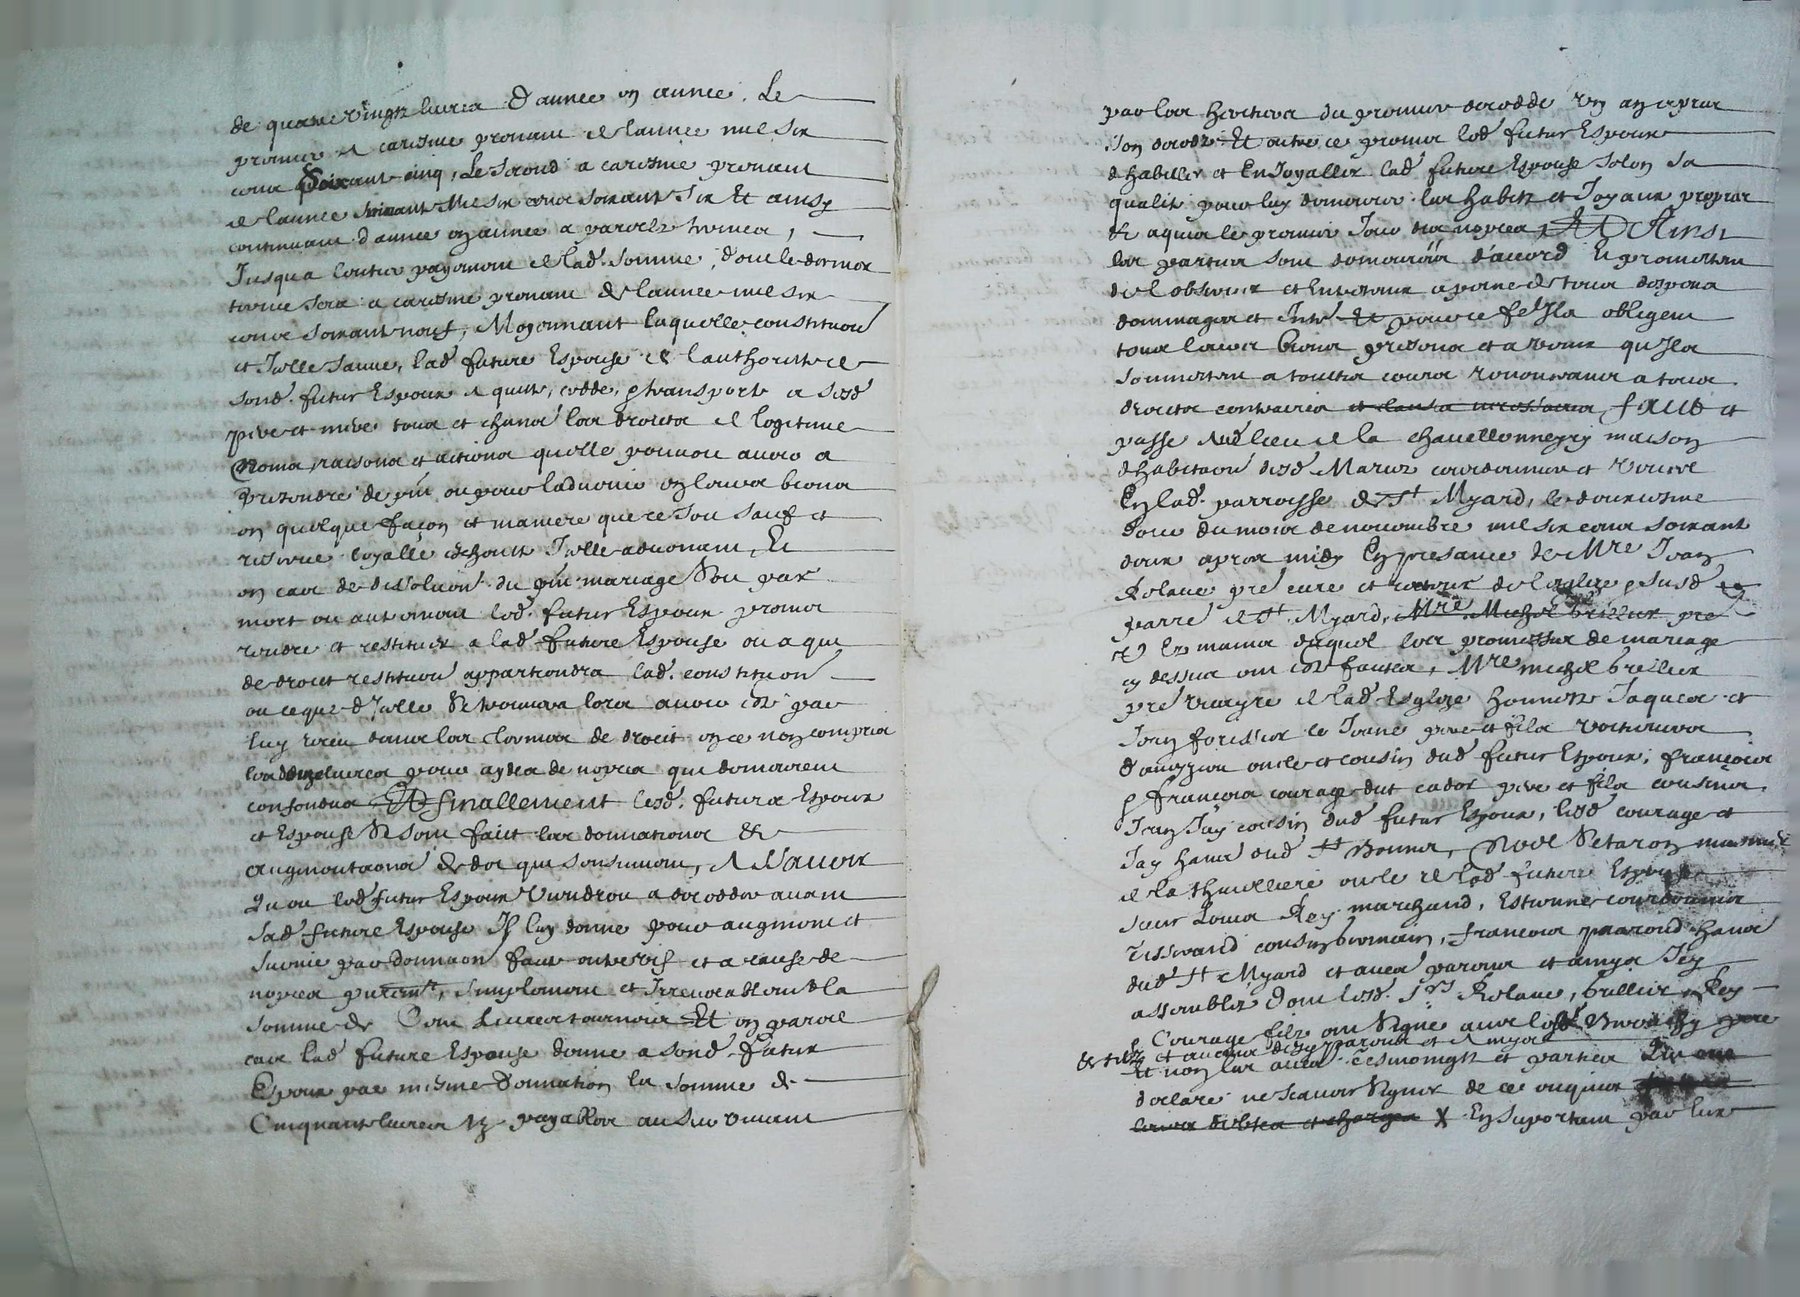 de quatre vingtz livres d'année en année. Le
premier a caresme prenant de l'année mil six
cens soixant cinq, Le second a caresme prenant
de l'année suivant Mil six cens soixant six Et ainsy
continuant d'année en année a pareilz termes,
Jusqu'a l'entier payement de lad. somme, dont le dernier
terme sera a caresme prenant de l'année mil six
cens soixant neuf, Moyennant laquelle constituon
et Icelle sauve, lad. future Espouse de l'authorité de
sond. futur Espoux a quitté, cedde, & transporte a sesd.
pere et mere tous et chuns les droictz de legitime
Noms, raisons et actions qu'elle pouvoit avoir a
pretendre de pnt ou pour l'advenir en leurs biens
en quelque façon et maniere que ce soit sauf et
reservé loyalle eschoitte Icelle advenant, Et
en cas de dissolution du pnt mariage soit par
mort ou autrement led. futur Espoux promet
rendre et restituer a lad. future Espouse ou a qui
de droict restituon appartiendra lad. constituon
ou ce que d'Icelle se trouvera lors avoir esté par
luy receu dans les termes de droict en ce non compris
les livres pour aydes de nopces qui demeurent
confondus Et finallement lesd. futurs Espoux
et Espouse se sont faict les donnations &
augmentaons de dot qui s'ensuivent, A Sçavoir
Qu'ou led. futur Espoux viendroit a decedder avant
sad. future Espouse Il luy donne pour augment et
survie par donnaon faict entre vifz et a cause de
nopces purement, simplement et Irrevocablement la
somme de Cent Livres tournois Et en pareil
cas lad. future Espouse donne a sond. futur
Espoux par mesme donnation la somme de
Cinquant livres tz payables au survivant
par les heritiers du premier decedde un an apres
son decedz Et outre ce promet led. futur Espoux
d'habiller et Enjoyaller lad. future Espouse selon sa
qualité pour luy demeurer les habitz et Joyaux propres
& aquis le premier Jour des nopces, Et Ainsi
les parties sont demeurées d'accord Et promettent
de l'observer et entretenir a peine de tous despens
dommages et Intz Et pour ce fe Ils obligent
tous leurs biens presens et a venir qu'Ils
soumettent a toutes cours renonceans a tous
droictz contraires et clauses necessaires, faict et
passé aud. lieu de la chavellonneyry maison
d'habitaon desd. Mariez courdonnier et
En lad. parroisse de St Myard, le douziesme
Jour du mois de novembre mil six cens soixant
deux apres midy En presance de Mre Jean
Rolane pre curé et recteur de l'esglize & susd.
parre de St Myard, Mre Michel brellier pre
es mains duquel les promesses de mariage
cy dessus ont esté faictes, Mre michel brellier
pre vicayre de lad. Esglize honnestz Jaques et
Jean forissier le Jeune pere et filz
d'aveyzieu oncle et cousin dud. futur Espoux, françois
& françois courage dit cadot pere et filz cousins,
Jean Jay cousin dud. futur Espoux, lesd. courage et
Jay hans dud. St Bonnet, Noel
de la thuilliere oncle de lad. future Espouse
sieur Louis Rey marchand, Estienne courdonnier
Tisserand cousin germain, françois hans
dud. St Myard et aues parens et amys Icy
assemblez dont lesd. Srs Rolane, brellier, Rey
& Courage filz ont signé avec lesd.
et aucuns desd. parens et amys
Et non les aues tesmoingtz et parties Qui ont
declaré ne sçavoir signer de ce enquis
leurs debtes et charges X En suportant par eux